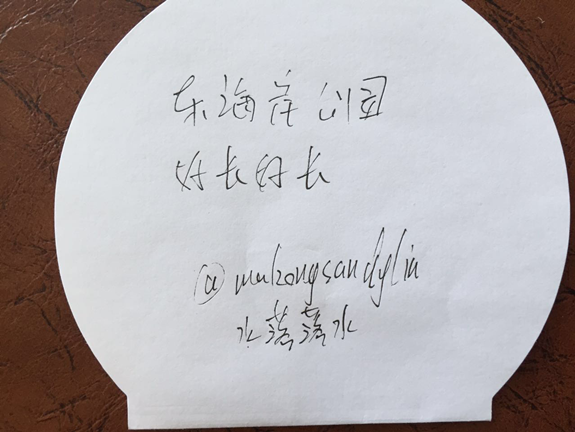 东海岸公园
好长好长
@mukongsandylin
水蓉蓉水